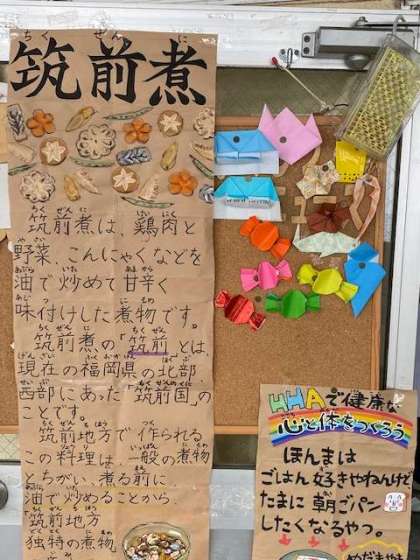 筑前煮
筑前煮は、鶏肉と
野菜、こんにゃくなどを
油で炒めて甘辛く
味付けした煮物です。
筑前煮の「筑前」とは、
現在の福岡県の北部、
西部にあった「筑前国」の
ことです。
筑前地方で作られる
この料理は、一般の煮物
とちがい、煮る前に
油で炒めることから、
筑前地方
独特の煮物
HHAで健康な
心と体をつくろう
ほんまは
ごはん好きやねんけど
たまに朝ごパン
したくなるやつ。
めだまやき